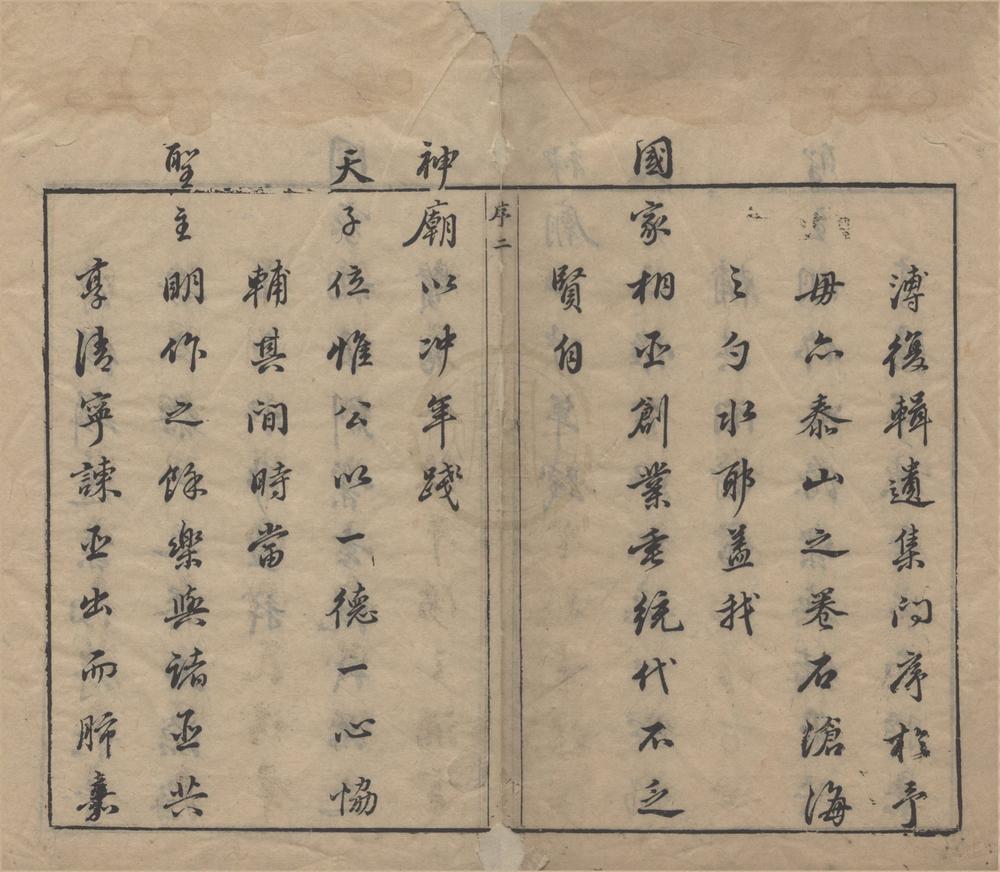 溥復輯遺集問序於予
毋亦泰山之卷石滄海
之勺水耶蓋我
國家相臣創業垂統代不乏
賢自
序二
神廟以冲年踐
天子位惟公以一德一心恊
輔其間時當
聖主明作之餘樂與諸臣共
享清寧諫臣出而肺囊